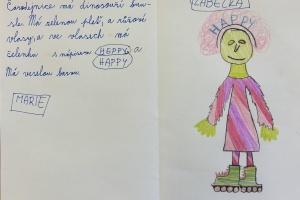 Čarodejnice má dinosauří bru-
sle. Má zelenou pleť, a růžové
vlasy, a ve vlasech má
čelenku s nápisem HEPPY a
HAPPY
Má veselou barvu.
MARIE
KABELKA
HAPPY